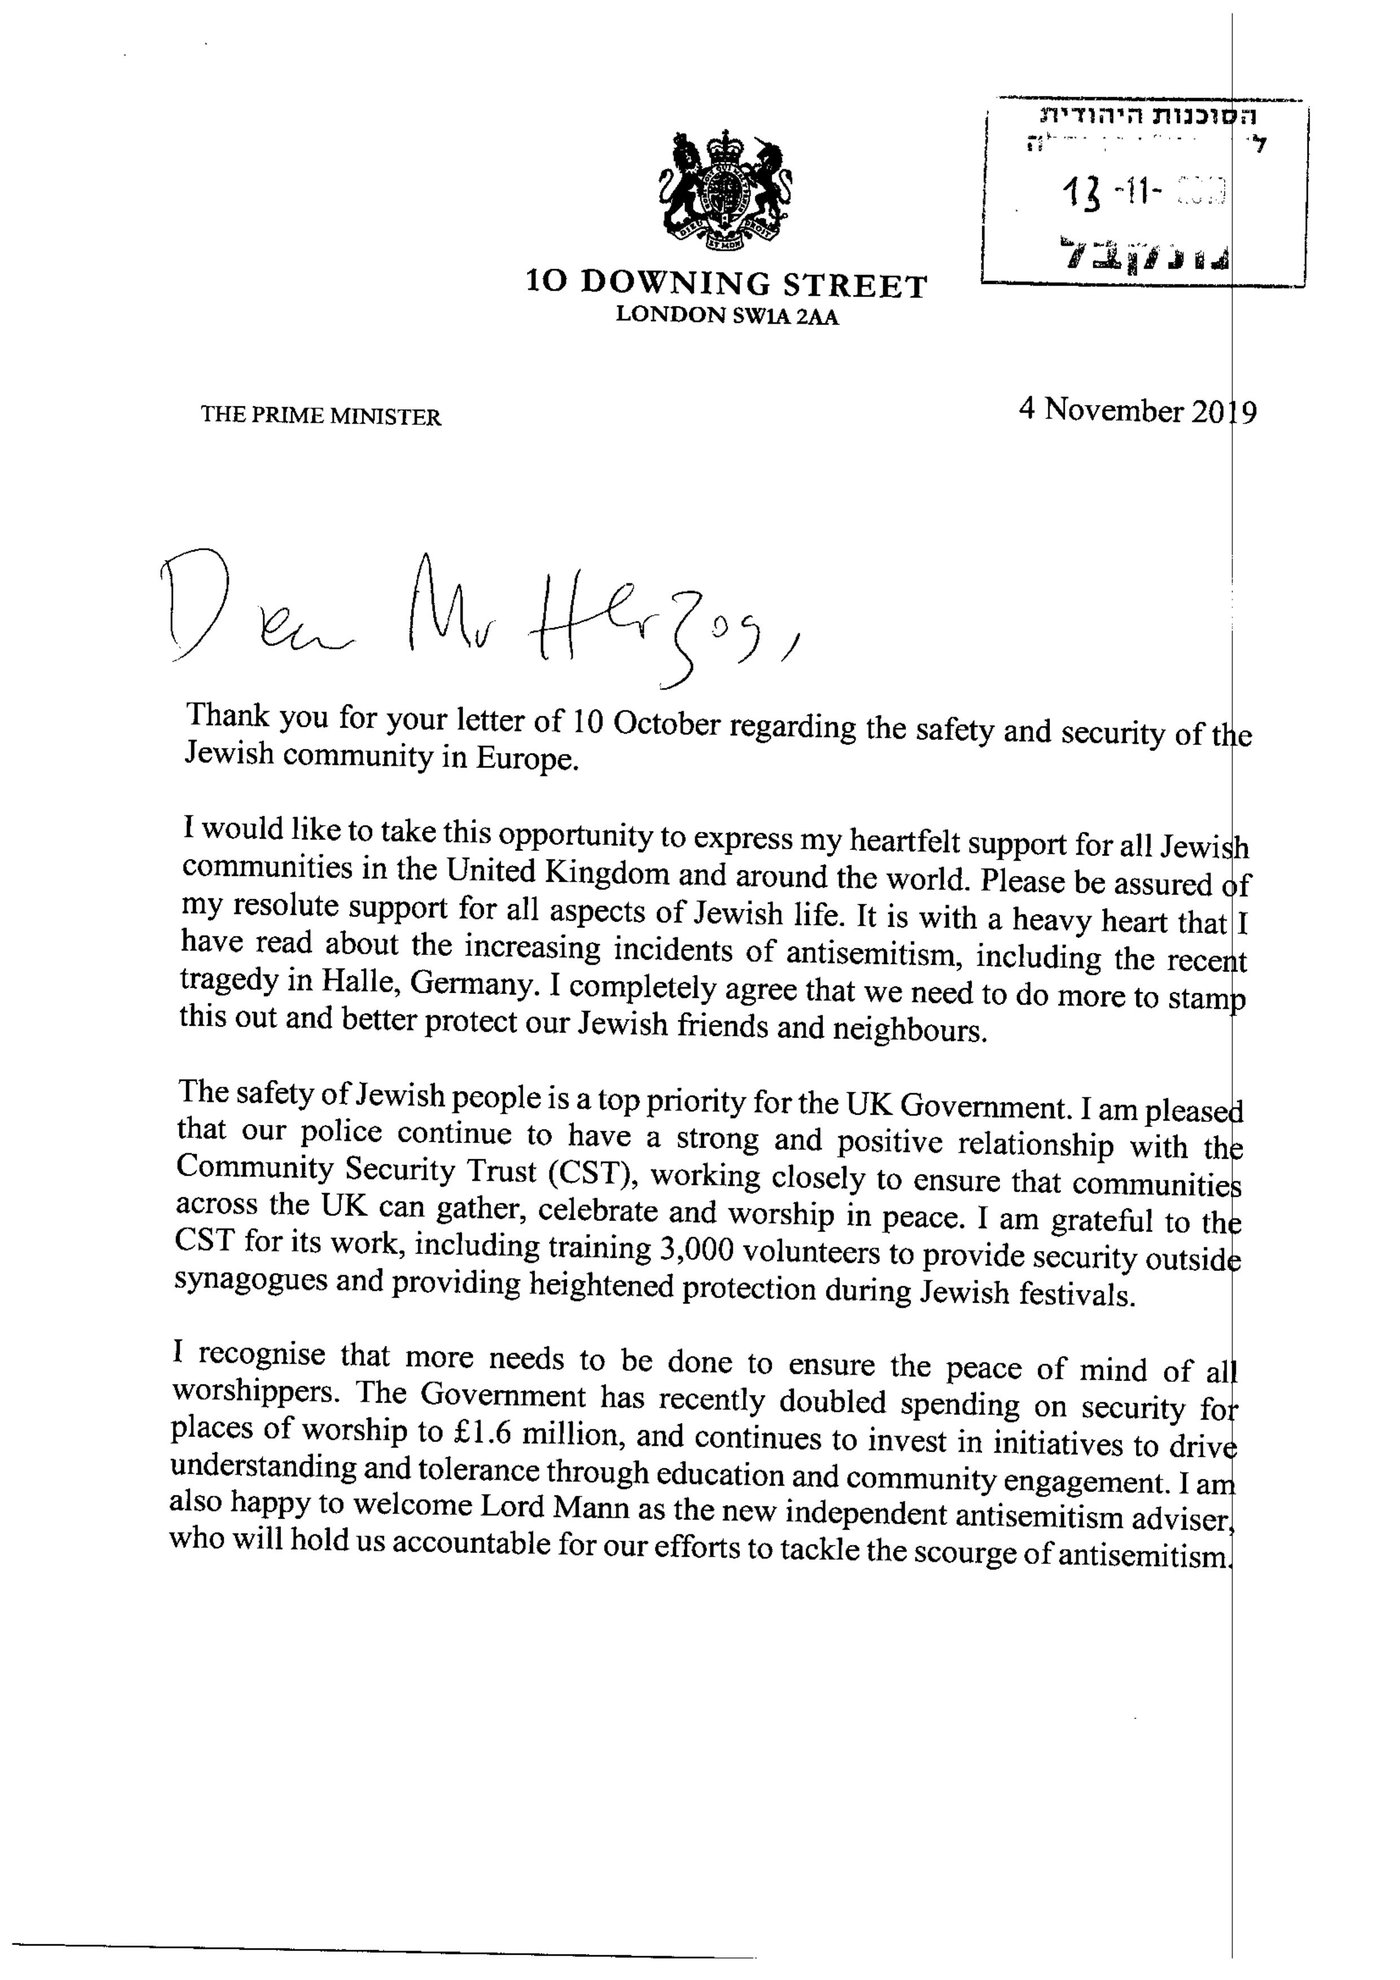 הסוכנות היהודית
13 -11- 2019
נתקבל
DIEU ET MON DROIT
10 DOWNING STREET
LONDON SW1A 2AA
THE PRIME MINISTER
4 November 2019
Dear Mr Herzog,
Thank you for your letter of 10 October regarding the safety and security of the
Jewish community in Europe.
I would like to take this opportunity to express my heartfelt support for all Jewish
communities in the United Kingdom and around the world. Please be assured of
my resolute support for all aspects of Jewish life. It is with a heavy heart that I
have read about the increasing incidents of antisemitism, including the recent
tragedy in Halle, Germany. I completely agree that we need to do more to stamp
this out and better protect our Jewish friends and neighbours.
The safety of Jewish people is a top priority for the UK Government. I am pleased
that our police continue to have a strong and positive relationship with the
Community Security Trust (CST), working closely to ensure that communities
across the UK can gather, celebrate and worship in peace. I am grateful to the
CST for its work, including training 3,000 volunteers to provide security outside
synagogues and providing heightened protection during Jewish festivals.
I recognise that more needs to be done to ensure the peace of mind of all
worshippers. The Government has recently doubled spending on security for
places of worship to £1.6 million, and continues to invest in initiatives to drive
understanding and tolerance through education and community engagement. I am
also happy to welcome Lord Mann as the new independent antisemitism adviser,
who will hold us accountable for our efforts to tackle the scourge of antisemitism.